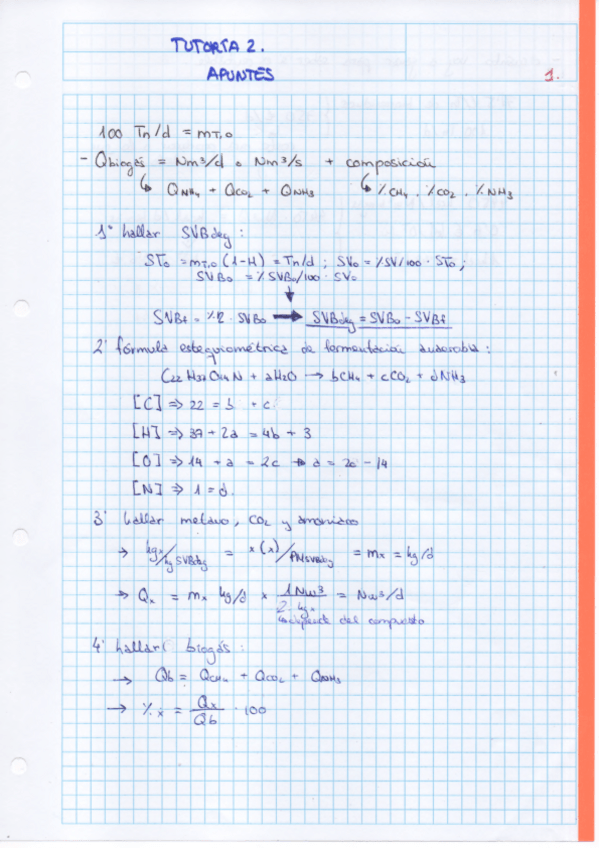 TUTORIA 2.
APUNTES
1.
100 Tn/d = mT,0
- Qbiogás = Nm³/d o Nm³/s + composición
↳ QNH4 + QCO2 + QNH3 ↳ %CH4, %CO2, %NH3
1º hallar SVBdeg :
STo = mT,0 (1-H) = Tn/d ; SVo = %SV/100 · STo ;
SVBo = %SVBo/100 · SVo
SVBf = %R · SVBo → SVBdeg = SVBo - SVBf
2º fórmula estequiométrica de fermentación anaerobia :
C22 H37 O14 N + aH2O → bCH4 + cCO2 + dNH3
[C] => 22 = b + c
[H] => 37 + 2a = 4b + 3
[O] => 14 + a = 2c → a = 2c - 14
[N] => 1 = d.
3º hallar metano, CO2 y amoniaco
→ kgx/kg SVBdeg = x(x)/PMSVBdeg = mx = kg/d
→ Qx = mx kg/d x 1Nm³/kgx = Nm³/d
depende del compuesto
4º hallar biogás :
→ Qb = QCH4 + QCO2 + QNH3
→ %x = Qx/Qb · 100